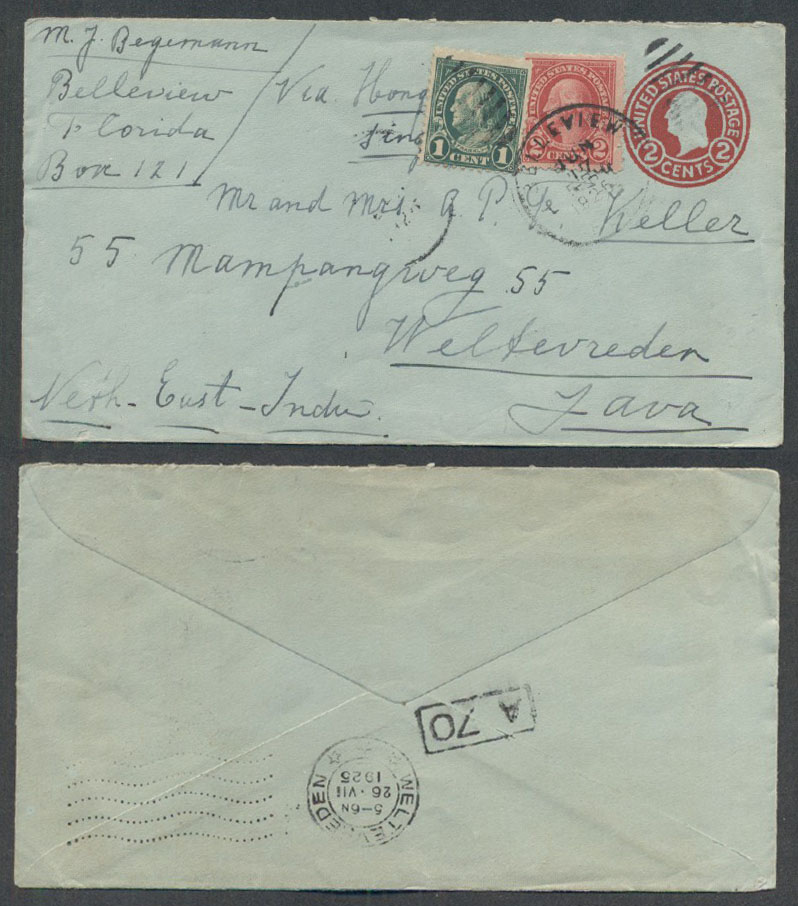 M. J. Begemann
Belleview
Florida
Box 121
Via Hong
Sing
UNITED STATES POSTAGE
1 CENT 1
UNITED STATES POSTAGE
2
UNITED STATES POSTAGE
2 CENTS 2
BELLEVIEW
Mr and Mrs A. P. Fe Weller
55 Mampangweg 55
Weltevreden
Java
Neth-East-Indie.
A 70
WELTEVREDEN
5-6N
26.VII
1925